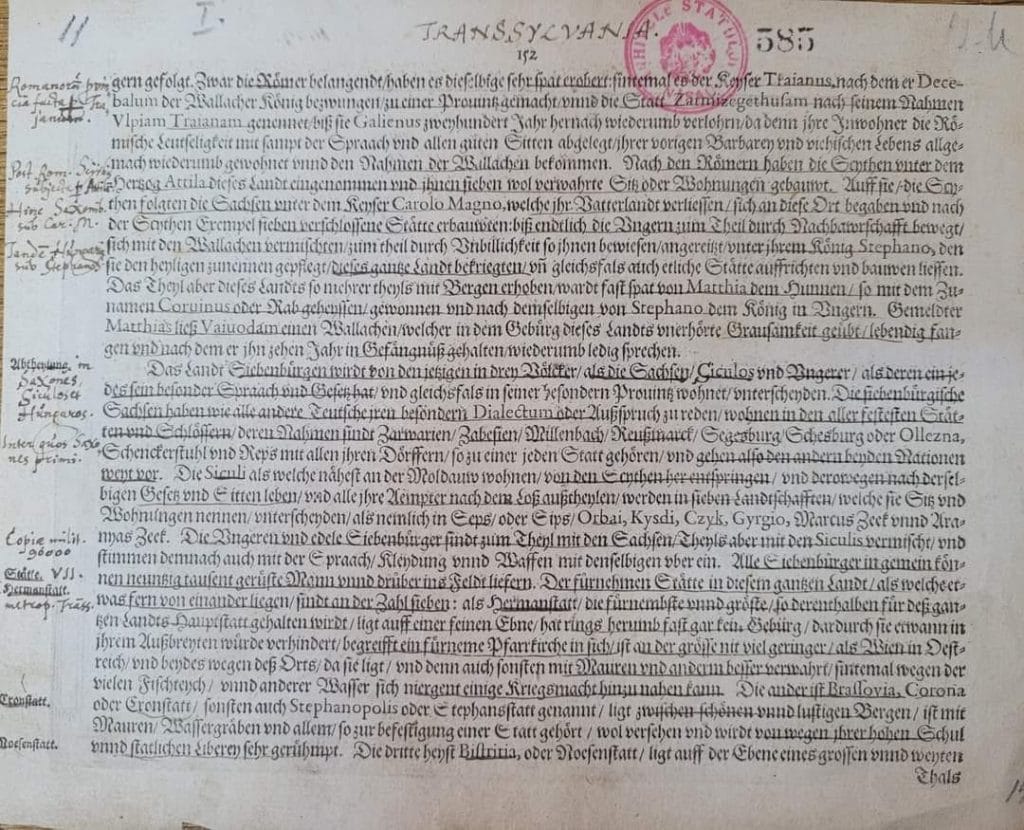 11
I.
TRANSSYLVANIA.
152
585
gern gefolgt. Zwar die Römer belangendt/haben es dieselbige sehr spat erobert: sintemal es der Keyser Traianus, nach dem er Dece-
balum der Wallacher König bezwungen/zu einer Prouintz gemacht/vnnd die Statt Zarmizegethusam nach seinem Nahmen
Vlpiam Traianam genennet/biß sie Galienus zweyhundert Jahr hernach wiederumb verlohrn/da denn jhre Inwohner die Rö-
mische Leutseligkeit mit sampt der Spraach vnd allen guten Sitten abgelegt/jhrer vorigen Barbarey vnd viehischen Lebens allge-
mach wiederumb gewohnet vnnd den Nahmen der Wallachen bekommen. Nach den Römern haben die Scythen vnter dem
Herzog Attila dieses Land eingenommen vnd jhnen sieben wol verwahrte Sitz oder Wohnungen gebauwt. Auff sie/die Scy-
then folgten die Sachsen vnter dem Keyser Carolo Magno, welche jhr Vatterlandt verliessen/sich an diese Ort begaben vnd nach
der Scythen Exempel sieben verschlossene Stätte erbauwten: biß endtlich die Vngern zum Theil durch Nachbawrschafft bewegt/
sich mit den Wallachen vermischten/zum theil durch Vnbillichkeit so jhnen bewiesen/angereitzt/vnter jhrem König Stephano, den
sie den heyligen zunennen gepflegt/dieses gantze Landt bekriegten/vñ gleichsfals auch etliche Stätte auffrichten vnd bauwen liessen.
Das Theyl aber dieses Lands so mehrer theyls mit Bergen erhoben/wardt fast spat von Matthia dem Hunnen/so mit dem Zu-
namen Coruinus oder Rab geheyssen/gewonnen vnd nach demselbigen von Stephano dem König in Vngern. Gemeldter
Matthias ließ Vaiuodam einen Wallachen/welcher in dem Gebürg dieses Lands vnerhörte Grausamkeit geübt/lebendig fan-
gen vnd nach dem er jhn zehen Jahr in Gefängnuß gehalten/wiederumb ledig sprechen.
Das Land Siebenbürgen wirdt von den jetzigen in drey Völcker/als die Sachsen/Ciculos vnd Vngerer/als deren ein je-
des sein besonder Spraach vnd Gesetz hat/vnd gleichsfals in seiner besondern Prouintz wohnet/vnterscheyden. Die siebenbürgische
Sachsen haben wie alle andere Teutsche jren besondern Dialectum oder Außspruch zu reden/wohnen in den aller festesten Stät-
ten vnd Schlössern/deren Nahmen sindt Zarwarien/Zabesien/Millenbach/Reußmarck/Segesburg/Schesburg oder Ollezna,
Schenckerstuhl vnd Reps mit allen jhren Dörffern/so zu einer jeden Statt gehören/vnd gehen also den andern beyden Nationen
weyt vor. Die Siculi als welche nähest an der Moldauw wohnen/von den Scythen her entspringen/vnd derowegen nach dersel-
bigen Gesetz vnd Sitten leben/vnd alle jhre Aempter nach dem Loß außtheylen/werden in sieben Landtschafften/welche sie Sitz vnd
Wohnungen nennen/vnterscheyden/als nemlich in Seps/oder Sips/Orbai, Kysdi, Czyk, Gyrgio, Marcus Zeek vnnd Ara-
myas Zeek. Die Vngeren vnd edele Siebenbürger sindt zum Theyl mit den Sachsen/Theyls aber mit den Siculis vermischt/vnd
stimmen demnach auch mit der Spraach/Kleydung vnnd Waffen mit denselbigen vber ein. Alle Siebenbürger in gemein kön-
nen neuntzig tausent gerüste Mann vnnd drüber ins Feldt liefern. Der fürnehmen Stätte in diesem gantzen Landt/als welche et-
was fern von einander liegen/sindt an der Zahl sieben: als Hermanstatt/die fürnembste vnnd gröste/so derenthalben für deß gan-
tzen Landts Hauptstatt gehalten wirdt/ligt auff einer feinen Ebne/hat rings herumb fast gar kein Gebürg/dardurch sie etwann in
jhrem Außbreyten würde verhindert/begreifft ein fürneme Pfarrkirche in sich/ist an der grösse nit viel geringer/als Wien in Oest-
reich/vnd beydes wegen deß Orts/da sie ligt/vnd denn auch sonsten mit Mauren vnd anderm besser verwahrt/sintemal wegen der
vielen Fischteych/vnnd anderer Wasser sich niergent einige Kriegsmacht hinzu nahen kann. Die ander ist Brassovia, Corona
oder Cronstatt/sonsten auch Stephanopolis oder Stephansstatt genannt/ligt zwischen schönen vnnd lustigen Bergen/ist mit
Mauren/Wassergräben vnd allem/so zur befestigung einer Statt gehört/wol versehen vnd wirdt von wegen jhrer hohen Schul
vnnd statlichen Liberey sehr gerühmpt. Die dritte heyst Bistricia, oder Noesenstatt/ligt auff der Ebene eines grossen vnnd weyten
Thals
Abtheylung in
Saxones,
Siculos et
Hungaros.
Inter quos Saxo
nes primi.
Copiæ milit.
90000
Stätte. VII.
Hermanstatt.
metrop. Trãss.
Cronstatt.
Noesenstatt.